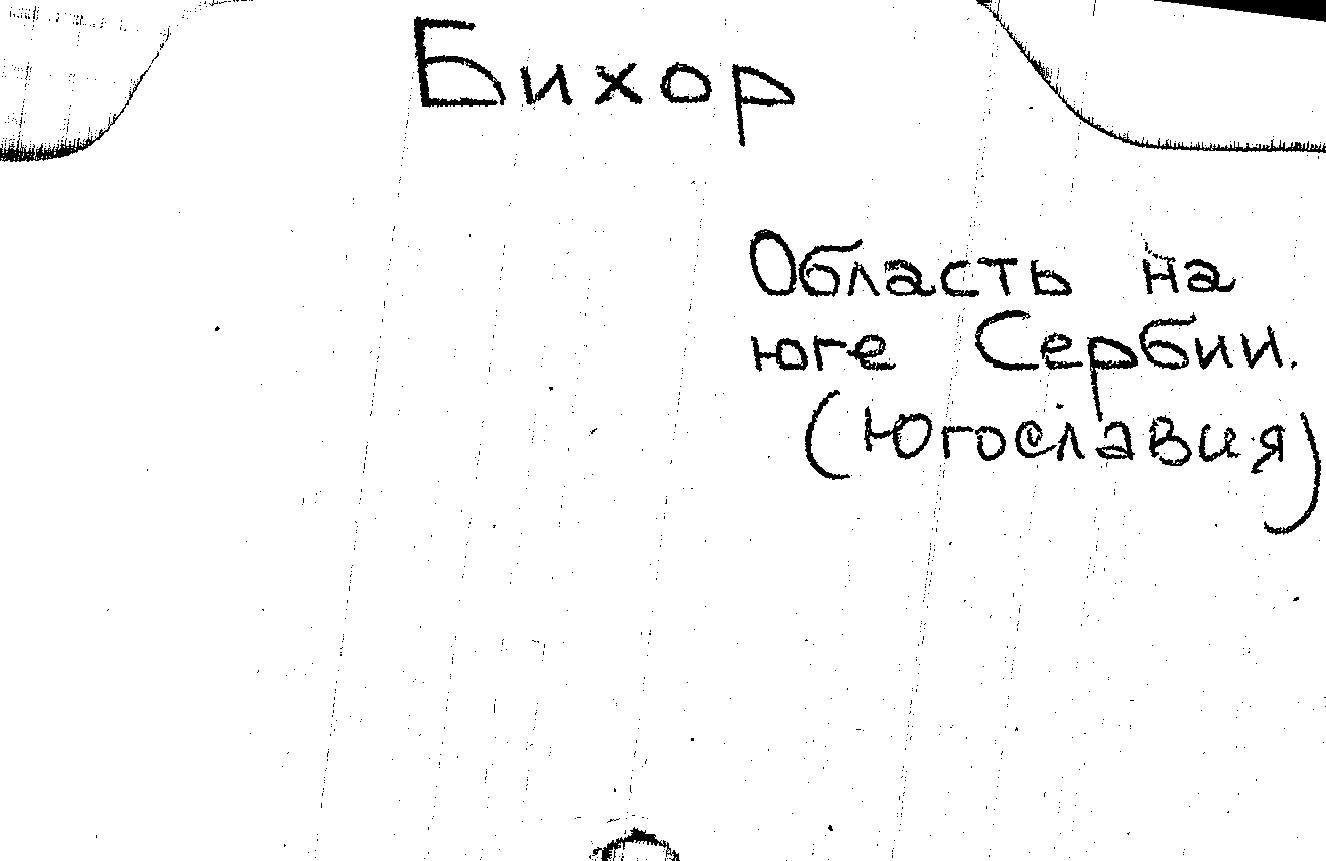 Бихор
Область на
юге Сербии.
(Югославия)